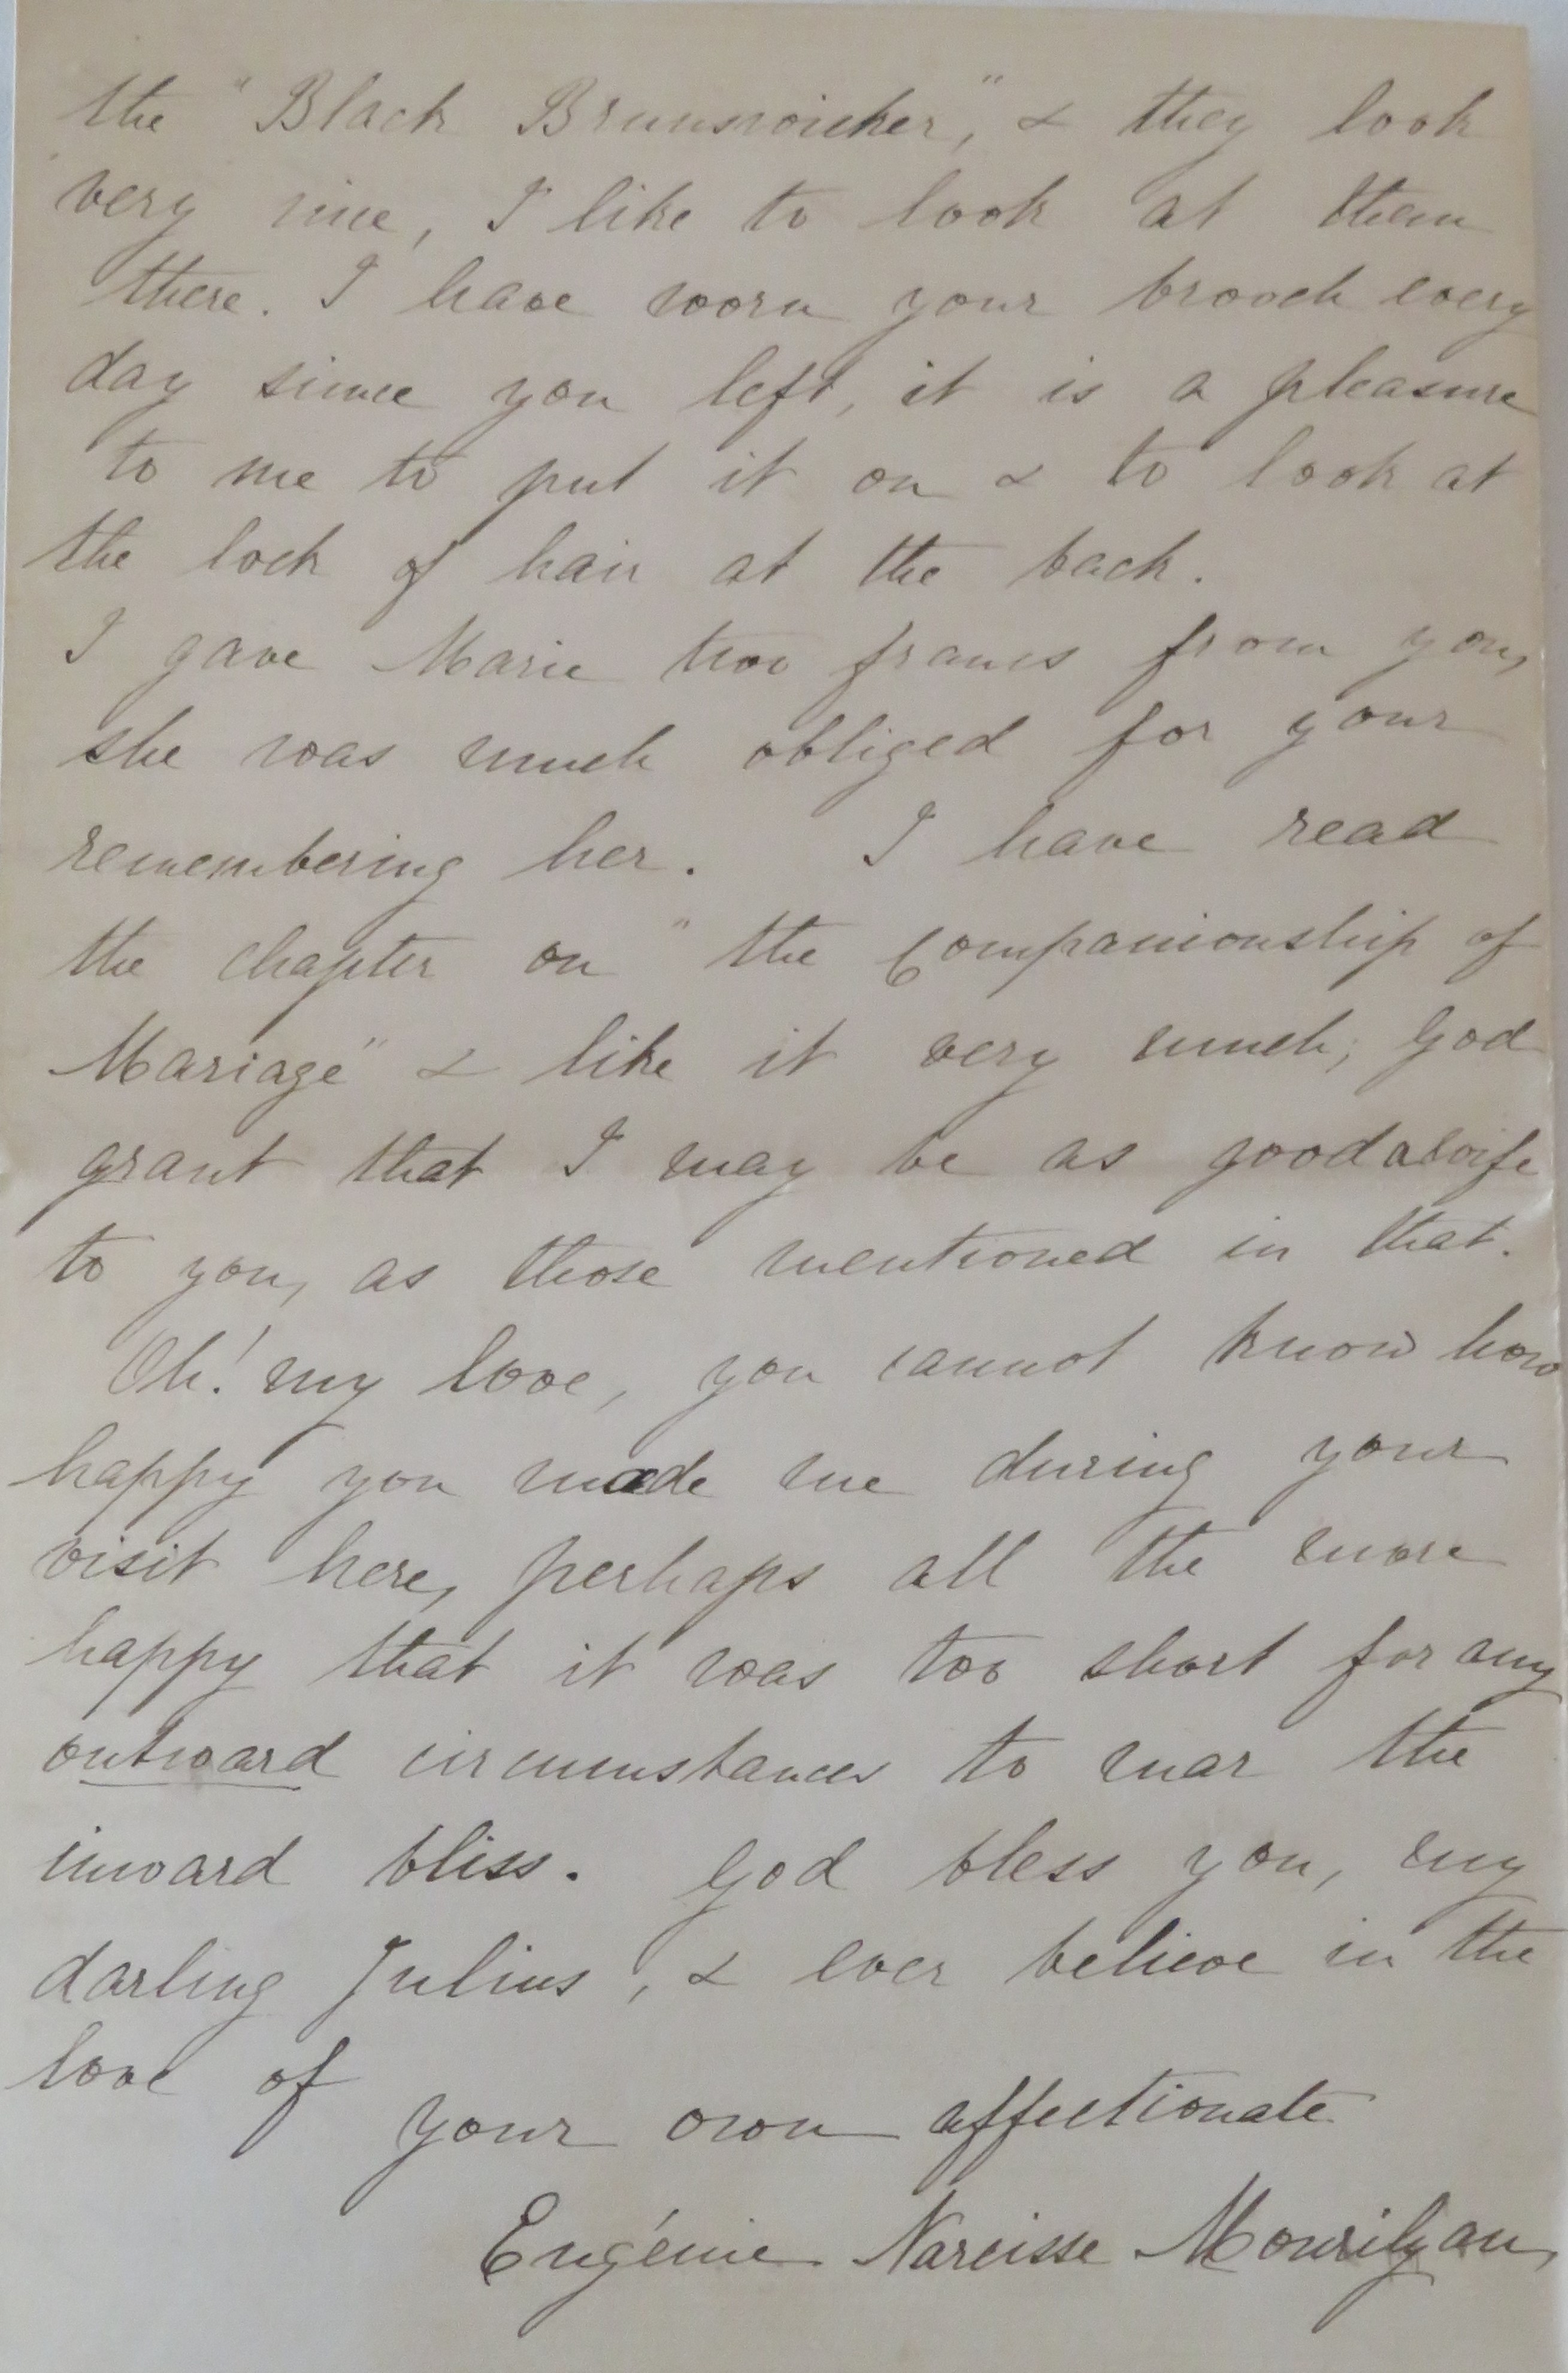 the "Black Brunswicker," & they look
very nice, I like to look at them
there. I have worn your brooch every
day since you left, it is a pleasure
to me to put it on & to look at
the lock of hair at the back.
I gave Marie two francs from you,
she was much obliged for your
remembering her. I have read
the chapter on "the Companionship of
Mariage" & like it very much; God
grant that I may be as good a wife
to you, as those mentioned in that.
Oh! my love, you cannot know how
happy you made me during your
visit here, perhaps all the more
happy that it was too short for any
outward circumstances to mar the
inward bliss. God bless you, my
darling Julius, & ever believe in the
love of
your own affectionate
Eugénie Narcisse Mourilyan,